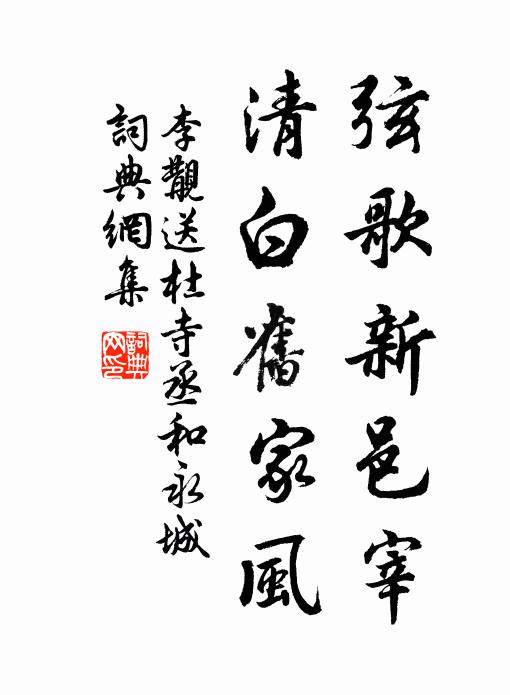 弦歌新邑宰
清白舊家風
李覯送杜寺丞和永城
詞典網集
詞典網印